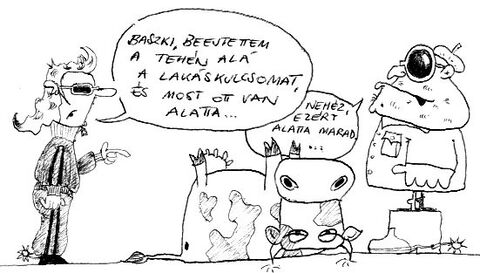 BASZKI, BEEJTETTEM
A TEHÉN ALÁ
A LAKÁSKULCSOMAT,
ÉS MOST OTT VAN
ALATTA...
NEHÉZ,
EZÉRT
ALATTA MARAD
...